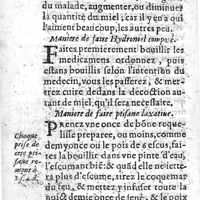 du malade, augmenter, ou diminuer
la quantité du miel; car il y en a qui
l'aiment beaucoup, les autres peu.
Maniere de faire Hydromel composé.
Faites premierement bouillir les
medicamens ordonnez, puis
estans bouillis selon l'intention du
medecin, vous les passerez, & met-
trez cuire dedans la decoction au-
tant de miel, qu'il sera necessaire.
Maniere de faire ptisane laxatiue.
Prenez vne once de bône regue-
lisse preparee, ou moins, comme
demy once ou le pois de 5 escus, fai-
tes la bouillir dans vne pinte d'eau,
l'escumant biē: & quãd elle ne iettera
plus d'escume, tirez le coquemar
du feu, & mettez y infuser toute la
nuict demie once de sené, & le pois
Chaque
prise de
ceste pti-
sane re-
uient à